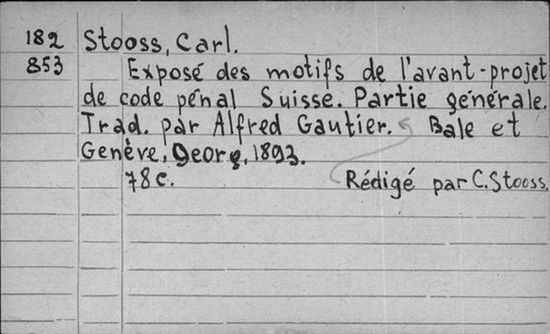 182 Stooss, Carl.
853 Exposé des motifs de l'avant-projet
de code pénal Suisse. Partie générale.
Trad. par Alfred Gautier. Bale et
Genève, Georg, 1893.
78 c. Rédigé par C. Stooss.